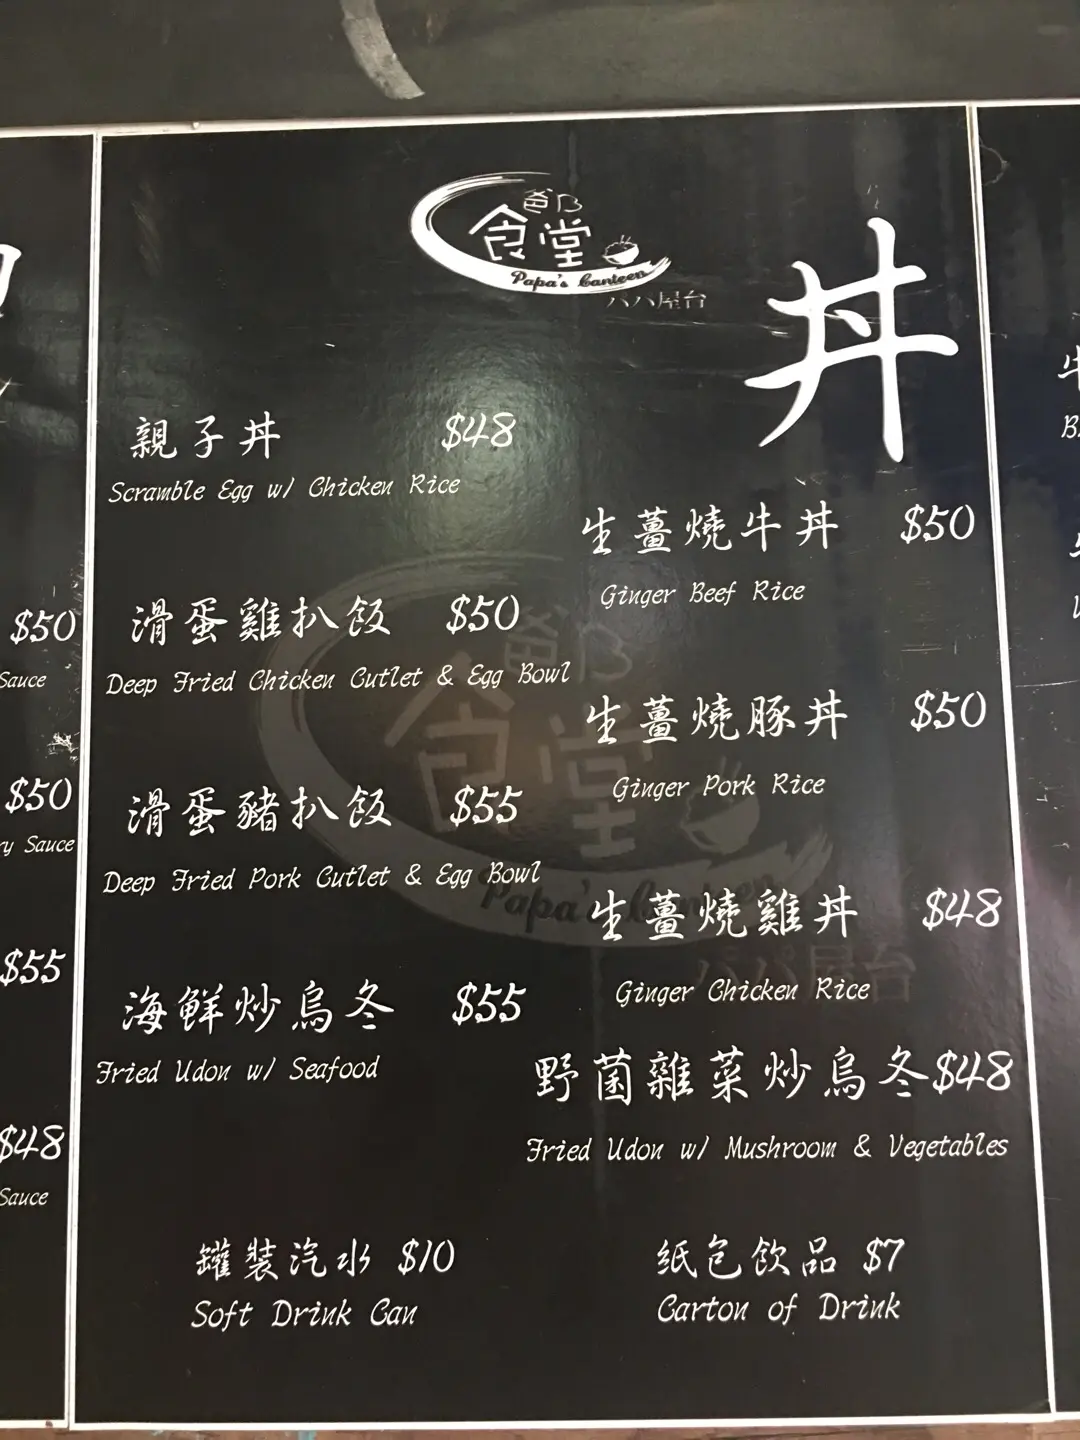 爸B
食堂
Papa's Canteen
パパ屋台
丼
親子丼 $48
Scramble Egg w/ Chicken Rice
生薑燒牛丼 $50
Ginger Beef Rice
滑蛋雞扒飯 $50
Deep Fried Chicken Cutlet & Egg Bowl
生薑燒豚丼 $50
Ginger Pork Rice
滑蛋豬扒飯 $55
Deep Fried Pork Cutlet & Egg Bowl
生薑燒雞丼 $48
Ginger Chicken Rice
海鮮炒烏冬 $55
Fried Udon w/ Seafood
野菌雜菜炒烏冬 $48
Fried Udon w/ Mushroom & Vegetables
罐裝汽水 $10
Soft Drink Can
紙包飲品 $7
Carton of Drink
爸B
食堂
Papa's Canteen
パパ屋台
$50
Sauce
$50
Sauce
$55
$48
Sauce
牛